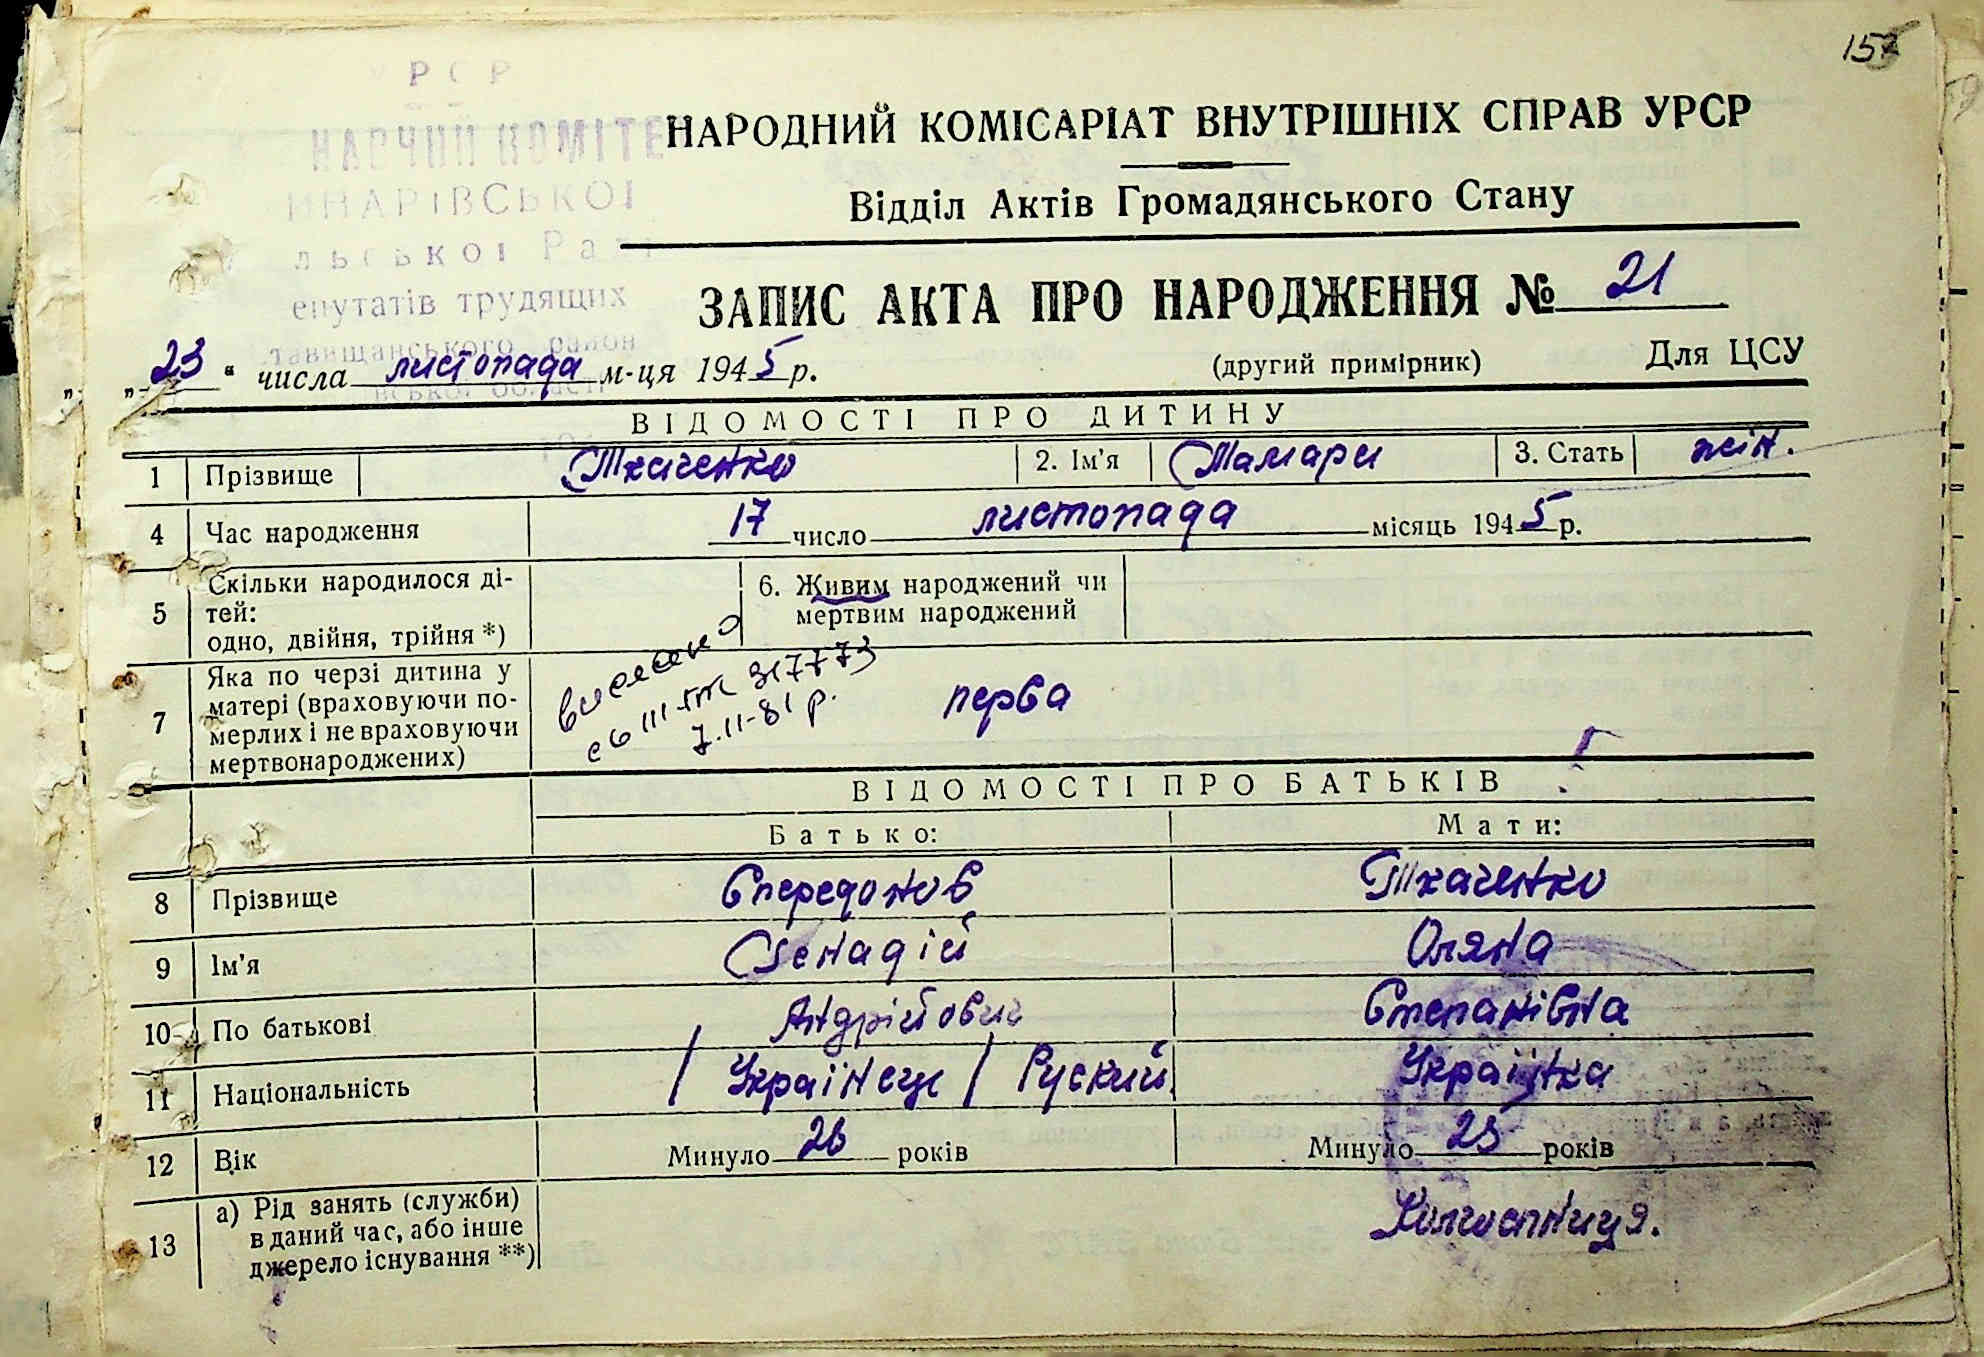 157
УРСР
НАВЧИЙ КОМІТЕ
ИНАРІВСЬКОЇ
льської Ра
епутатів трудящих
тавищанського район
НАРОДНИЙ КОМІСАРІАТ ВНУТРІШНІХ СПРАВ УРСР
Відділ Актів Громадянського Стану
ЗАПИС АКТА ПРО НАРОДЖЕННЯ № 21
„ 23 “ числа листопада м-ця 1945 р. (другий примірник) Для ЦСУ
ВІДОМОСТІ ПРО ДИТИНУ
1 Прізвище Ткаченко 2. Ім'я Тамари 3. Стать жін.
4 Час народження 17 число листопада місяць 1945 р.
5 Скільки народилося ді-
тей:
одно, двійня, трійня *)
6. Живим народжений чи
мертвим народжений
7 Яка по черзі дитина у
матері (враховуючи по-
мерлих і не враховуючи
мертвонароджених)
перва
317773
7.11-81 р.
ВІДОМОСТІ ПРО БАТЬКІВ
Батько: Мати:
8 Прізвище Спередонов Ткаченко
9 Ім'я Генадій Оляна
10 По батькові Андрійович Степанівна
11 Національність / Українець / Руский Українка
12 Вік Минуло 26 років Минуло 25 років
13 а) Рід занять (служби)
в даний час, або інше
джерело існування **)
Колгоспниця.